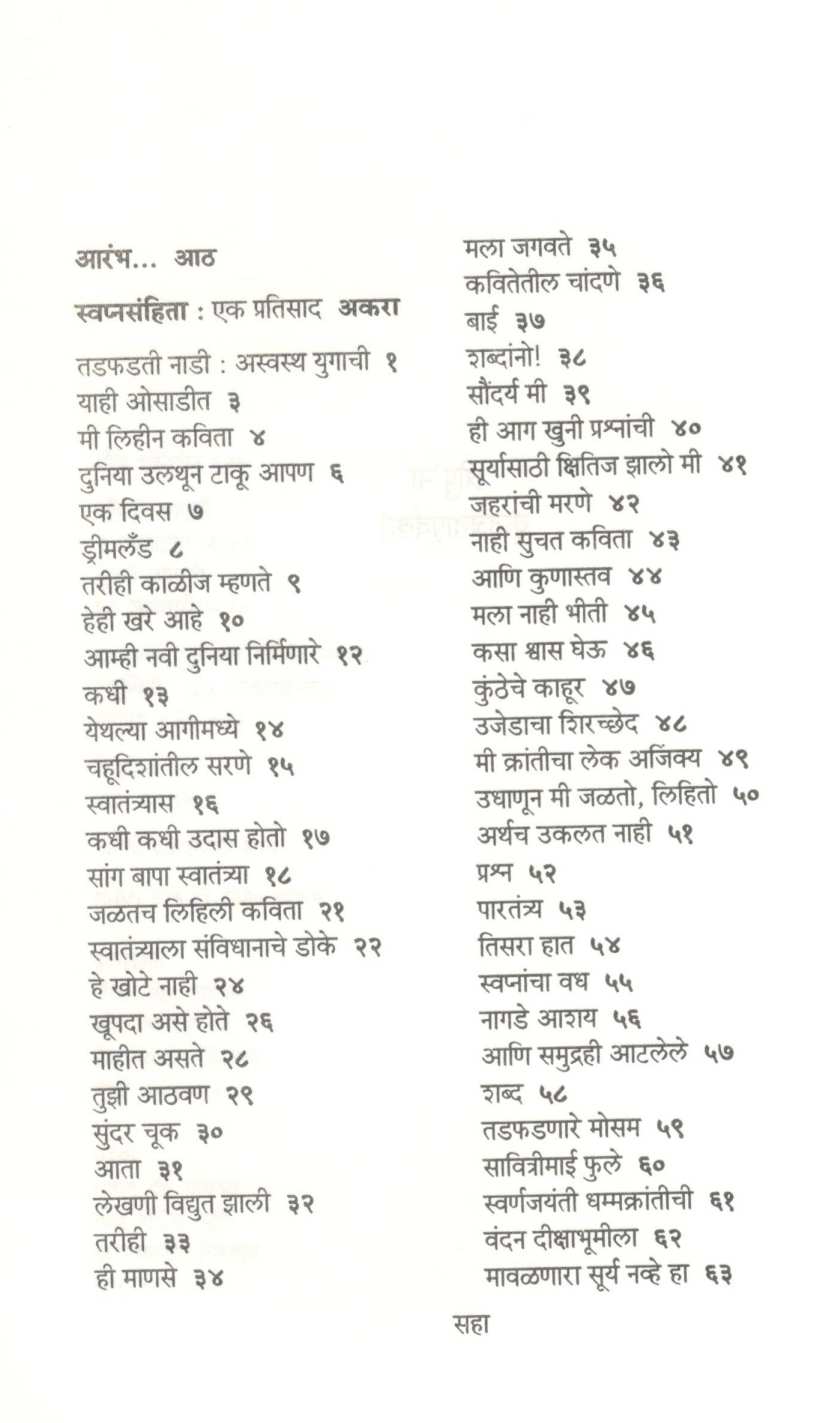 आरंभ... आठ
स्वप्नसंहिता : एक प्रतिसाद अकरा
तडफडती नाडी : अस्वस्थ युगाची १
याही ओसाडीत ३
मी लिहीन कविता ४
दुनिया उलथून टाकू आपण ६
एक दिवस ७
ड्रीमलँड ८
तरीही काळीज म्हणते ९
हेही खरे आहे १०
आम्ही नवी दुनिया निर्मिणारे १२
कधी १३
येथल्या आगीमध्ये १४
चहूदिशांतील सरणे १५
स्वातंत्र्यास १६
कधी कधी उदास होतो १७
सांग बापा स्वातंत्र्या १८
जळतच लिहिली कविता २१
स्वातंत्र्याला संविधानाचे डोके २२
हे खोटे नाही २४
खूपदा असे होते २६
माहीत असते २८
तुझी आठवण २९
सुंदर चूक ३०
आता ३१
लेखणी विद्युत झाली ३२
तरीही ३३
ही माणसे ३४
मला जगवते ३५
कवितेतील चांदणे ३६
बाई ३७
शब्दांनो! ३८
सौंदर्य मी ३९
ही आग खुनी प्रश्नांची ४०
सूर्यासाठी क्षितिज झालो मी ४१
जहरांची मरणे ४२
नाही सुचत कविता ४३
आणि कुणास्तव ४४
मला नाही भीती ४५
कसा श्वास घेऊ ४६
कुंठेचे काहूर ४७
उजेडाचा शिरच्छेद ४८
मी क्रांतीचा लेक अजिंक्य ४९
उधाणून मी जळतो, लिहितो ५०
अर्थच उकलत नाही ५१
प्रश्न ५२
पारतंत्र्य ५३
तिसरा हात ५४
स्वप्नांचा वध ५५
नागडे आशय ५६
आणि समुद्रही आटलेले ५७
शब्द ५८
तडफडणारे मोसम ५९
सावित्रीमाई फुले ६०
स्वर्णजयंती धम्मक्रांतीची ६१
वंदन दीक्षाभूमीला ६२
मावळणारा सूर्य नव्हे हा ६३
सहा